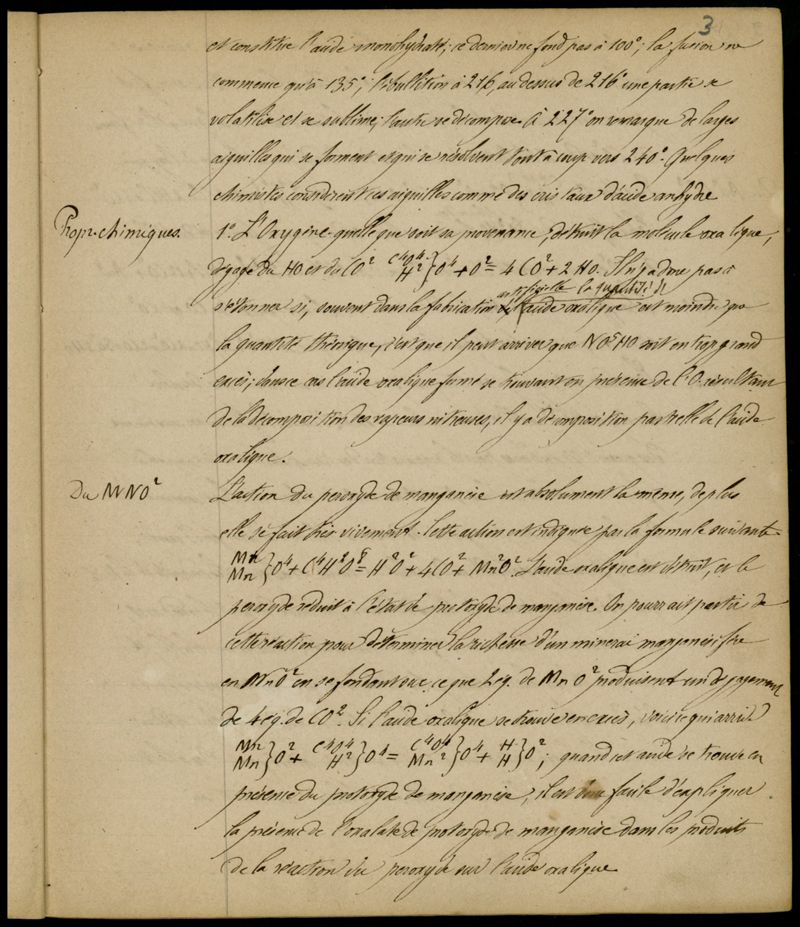 3
et constitue l'acide monohydraté; ce dernier ne fond pas à 100°; la fusion ne
commence qu'à 135°; l'ébullition à 216, au dessus de 216° une partie se
volatilise et se sublime; l'autre se décompose. À 227° on remarque de larges
aiguilles qui se forment et qui se résolvent tout à coup vers 240°. Quelques
chimistes considèrent ces aiguilles comme des cristaux d'acide anhydre
Propr. chimiques.
1°. L'Oxygène quelle que soit sa provenance, détruit la molécule oxalique,
dégage du HO et du CO² C⁴O⁴ H² } O⁴ + O² = 4 CO² + 2 HO. Il n'y a donc pas à
s'étonner si, souvent dans la fabrication artificielle la quantité d'acide oxalique est moindre que
la quantité théorique, c'est que il peut arriver que NO⁵HO soit en trop grand
excès; dans ce cas l'acide oxalique formé se trouvant en présence de l'O résultant
de la décomposition des vapeurs nitreuses, il y a décomposition partielle de l'acide
oxalique.
Du MNO²
L'action du peroxyde de manganèse est absolument la même, de plus
elle se fait très vivement. Cette action est indiquée par la formule suivante
Mn Mn } O⁴ + C⁴H²O⁸ = H²O² + 4CO² + Mn²O². L'acide oxalique est détruit, et le
peroxyde réduit à l'état de protoxyde de manganèse. On pourrait partir de
cette réaction pour déterminer la richesse d'un minerai manganésifère
en MnO² en se fondant sur ce que 2 éq. de MnO² produisent un dégagement
de 4 éq. de CO². Si l'acide oxalique se trouve en excès, voici ce qui arrive
Mn Mn } O² + C⁴O⁴ H² } O⁴ = C⁴O⁴ Mn² } O⁴ + H H } O²; quand cet acide se trouve en
présence du protoxyde de manganèse, il est facile d'expliquer
la présence de l'oxalate de protoxyde de manganèse dans les produits
de la réaction du peroxyde sur l'acide oxalique